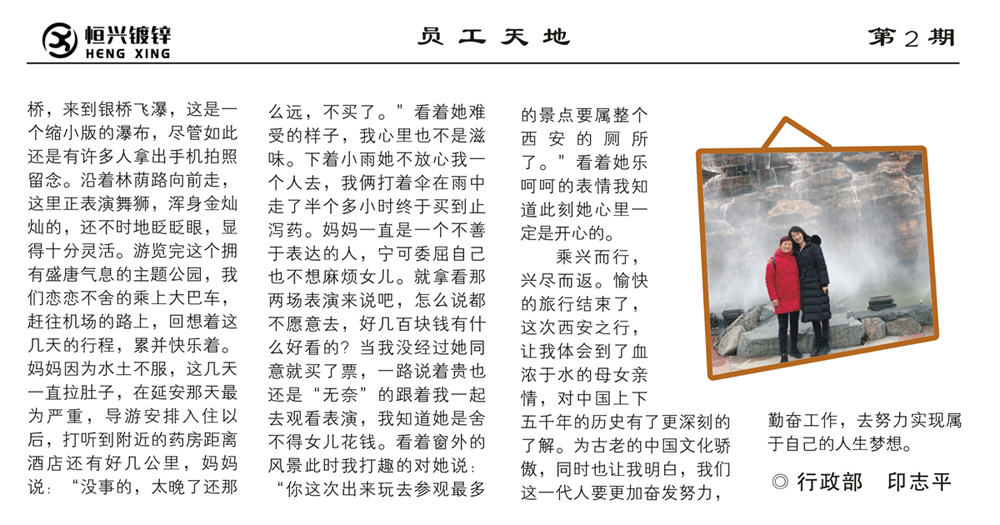 恒兴镀锌
HENG XING
员工天地
第2期
桥，来到银桥飞瀑，这是一
个缩小版的瀑布，尽管如此
还是有许多人拿出手机拍照
留念。沿着林荫路向前走，
这里正表演舞狮，浑身金灿
灿的，还不时地眨眨眼，显
得十分灵活。游览完这个拥
有盛唐气息的主题公园，我
们恋恋不舍的乘上大巴车，
赶往机场的路上，回想着这
几天的行程，累并快乐着。
妈妈因为水土不服，这几天
一直拉肚子，在延安那天最
为严重，导游安排入住以
后，打听到附近的药房距离
酒店还有好几公里，妈妈
说：“没事的，太晚了还那
么远，不买了。”看着她难
受的样子，我心里也不是滋
味。下着小雨她不放心我一
个人去，我俩打着伞在雨中
走了半个多小时终于买到止
泻药。妈妈一直是一个不善
于表达的人，宁可委屈自己
也不想麻烦女儿。就拿看那
两场表演来说吧，怎么说都
不愿意去，好几百块钱有什
么好看的？当我没经过她同
意就买了票，一路说着贵也
还是“无奈”的跟着我一起
去观看表演，我知道她是舍
不得女儿花钱。看着窗外的
风景此时我打趣的对她说：
“你这次出来玩去参观最多
的景点要属整个
西安的厕所
了。”看着她乐
呵呵的表情我知
道此刻她心里一
定是开心的。
乘兴而行，
兴尽而返。愉快
的旅行结束了，
这次西安之行，
让我体会到了血
浓于水的母女亲
情，对中国上下
五千年的历史有了更深刻的
了解。为古老的中国文化骄
傲，同时也让我明白，我们
这一代人要更加奋发努力，
勤奋工作，去努力实现属
于自己的人生梦想。
◎ 行政部 印志平